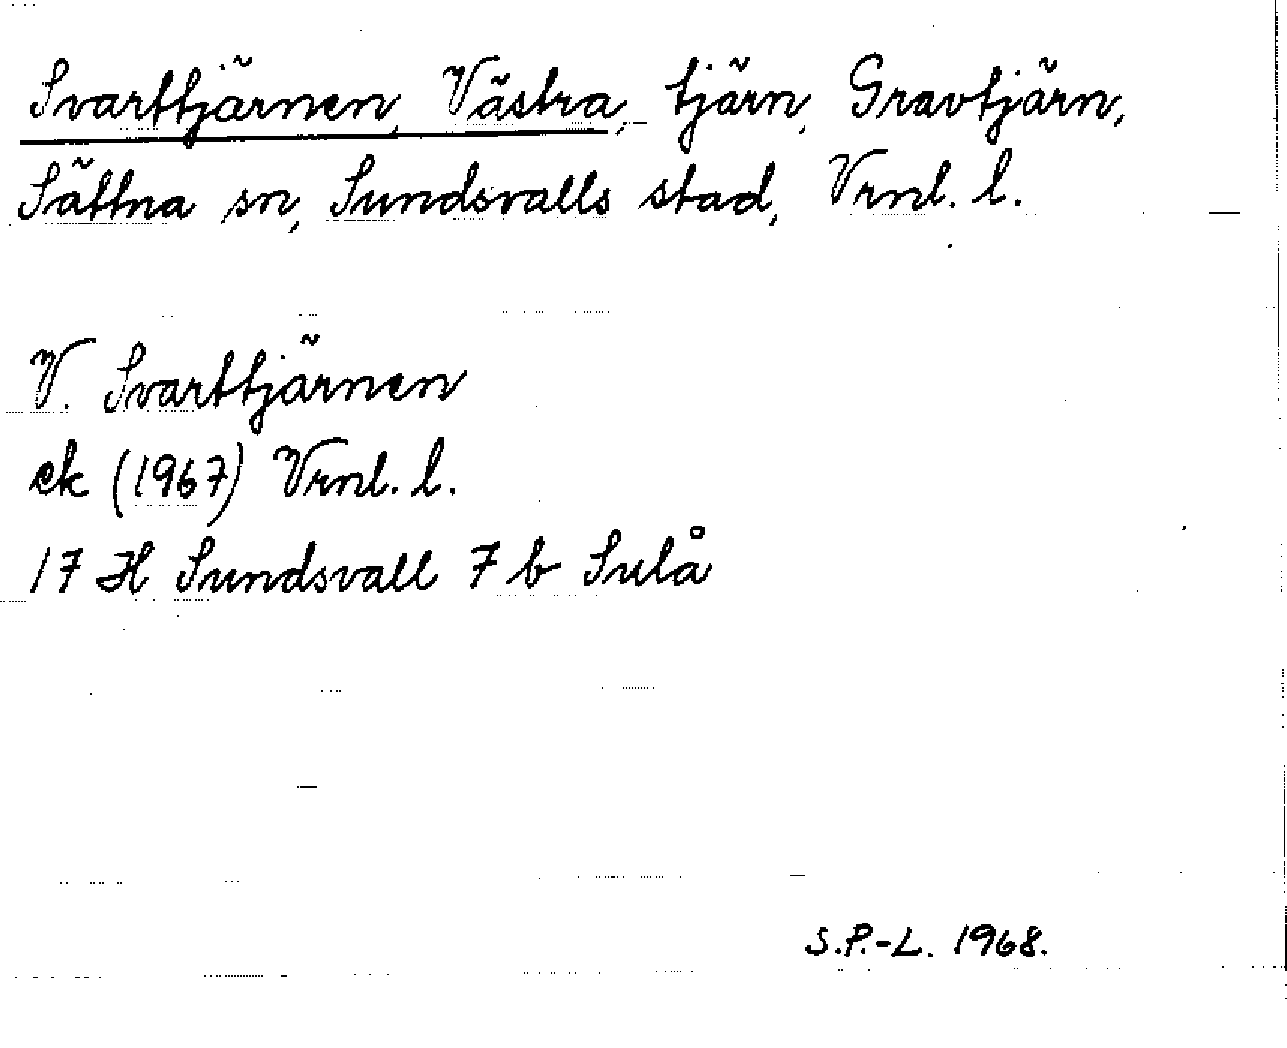 Svarttjärnen, Västra, tjärn, Gravtjärn,
Sättna sn, Sundsvalls stad, Vrnl. l.
V. Svarttjärnen
ek (1967) Vrnl. l.
17 H Sundsvall 7 b Sulå
S.P.-L. 1968.